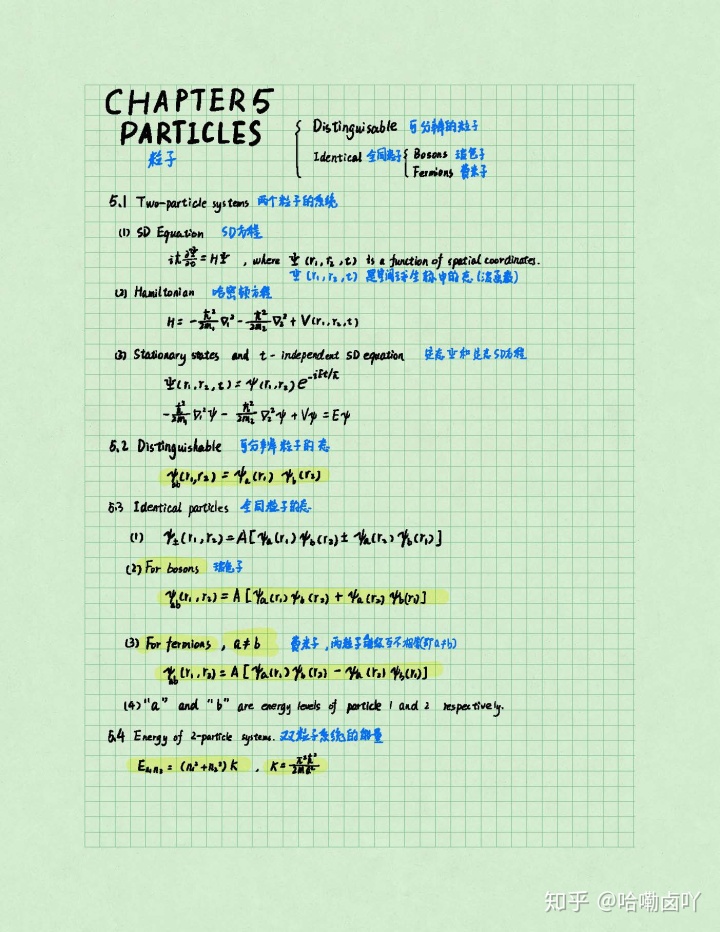 CHAPTER 5
PARTICLES
粒子
Distinguisable 可分辨的粒子
Identical 全同粒子 { Bosons 玻色子
Fermions 费米子
5.1 Two-particle systems 两个粒子的系统
(1) SD Equation SD方程
iħ ∂Ψ/∂t = HΨ , where Ψ(r₁,r₂,t) is a function of spatial coordinates.
Ψ(r₁,r₂,t) 是空间坐标中的态(波函数)
(2) Hamiltonian 哈密顿方程
H = -ħ²/2m₁ ∇₁² - ħ²/2m₂ ∇₂² + V(r₁,r₂,t)
(3) Stationary states and t-independent SD equation 定态Ψ和定态SD方程
Ψ(r₁,r₂,t) = ψ(r₁,r₂)e^{-iEt/ħ}
-ħ²/2m₁ ∇₁²ψ - ħ²/2m₂ ∇₂²ψ + Vψ = Eψ
5.2 Distinguishable 可分辨粒子的态
ψab(r₁,r₂) = ψa(r₁) ψb(r₂)
5.3 Identical particles 全同粒子的态
(1) ψ±(r₁,r₂) = A[ψa(r₁)ψb(r₂) ± ψa(r₂)ψb(r₁)]
(2) For bosons 玻色子
ψab(r₁,r₂) = A[ψa(r₁)ψb(r₂) + ψa(r₂)ψb(r₁)]
(3) For fermions , a≠b 费米子,两粒子能级互不相等(即a≠b)
ψab(r₁,r₂) = A[ψa(r₁)ψb(r₂) - ψa(r₂)ψb(r₁)]
(4) "a" and "b" are energy levels of particle 1 and 2 respectively.
5.4 Energy of 2-particle systems. 双粒子系统的能量
En₁n₂ = (n₁²+n₂²)K , K = π²ħ²/2ma²
知乎 @哈嘞卤吖